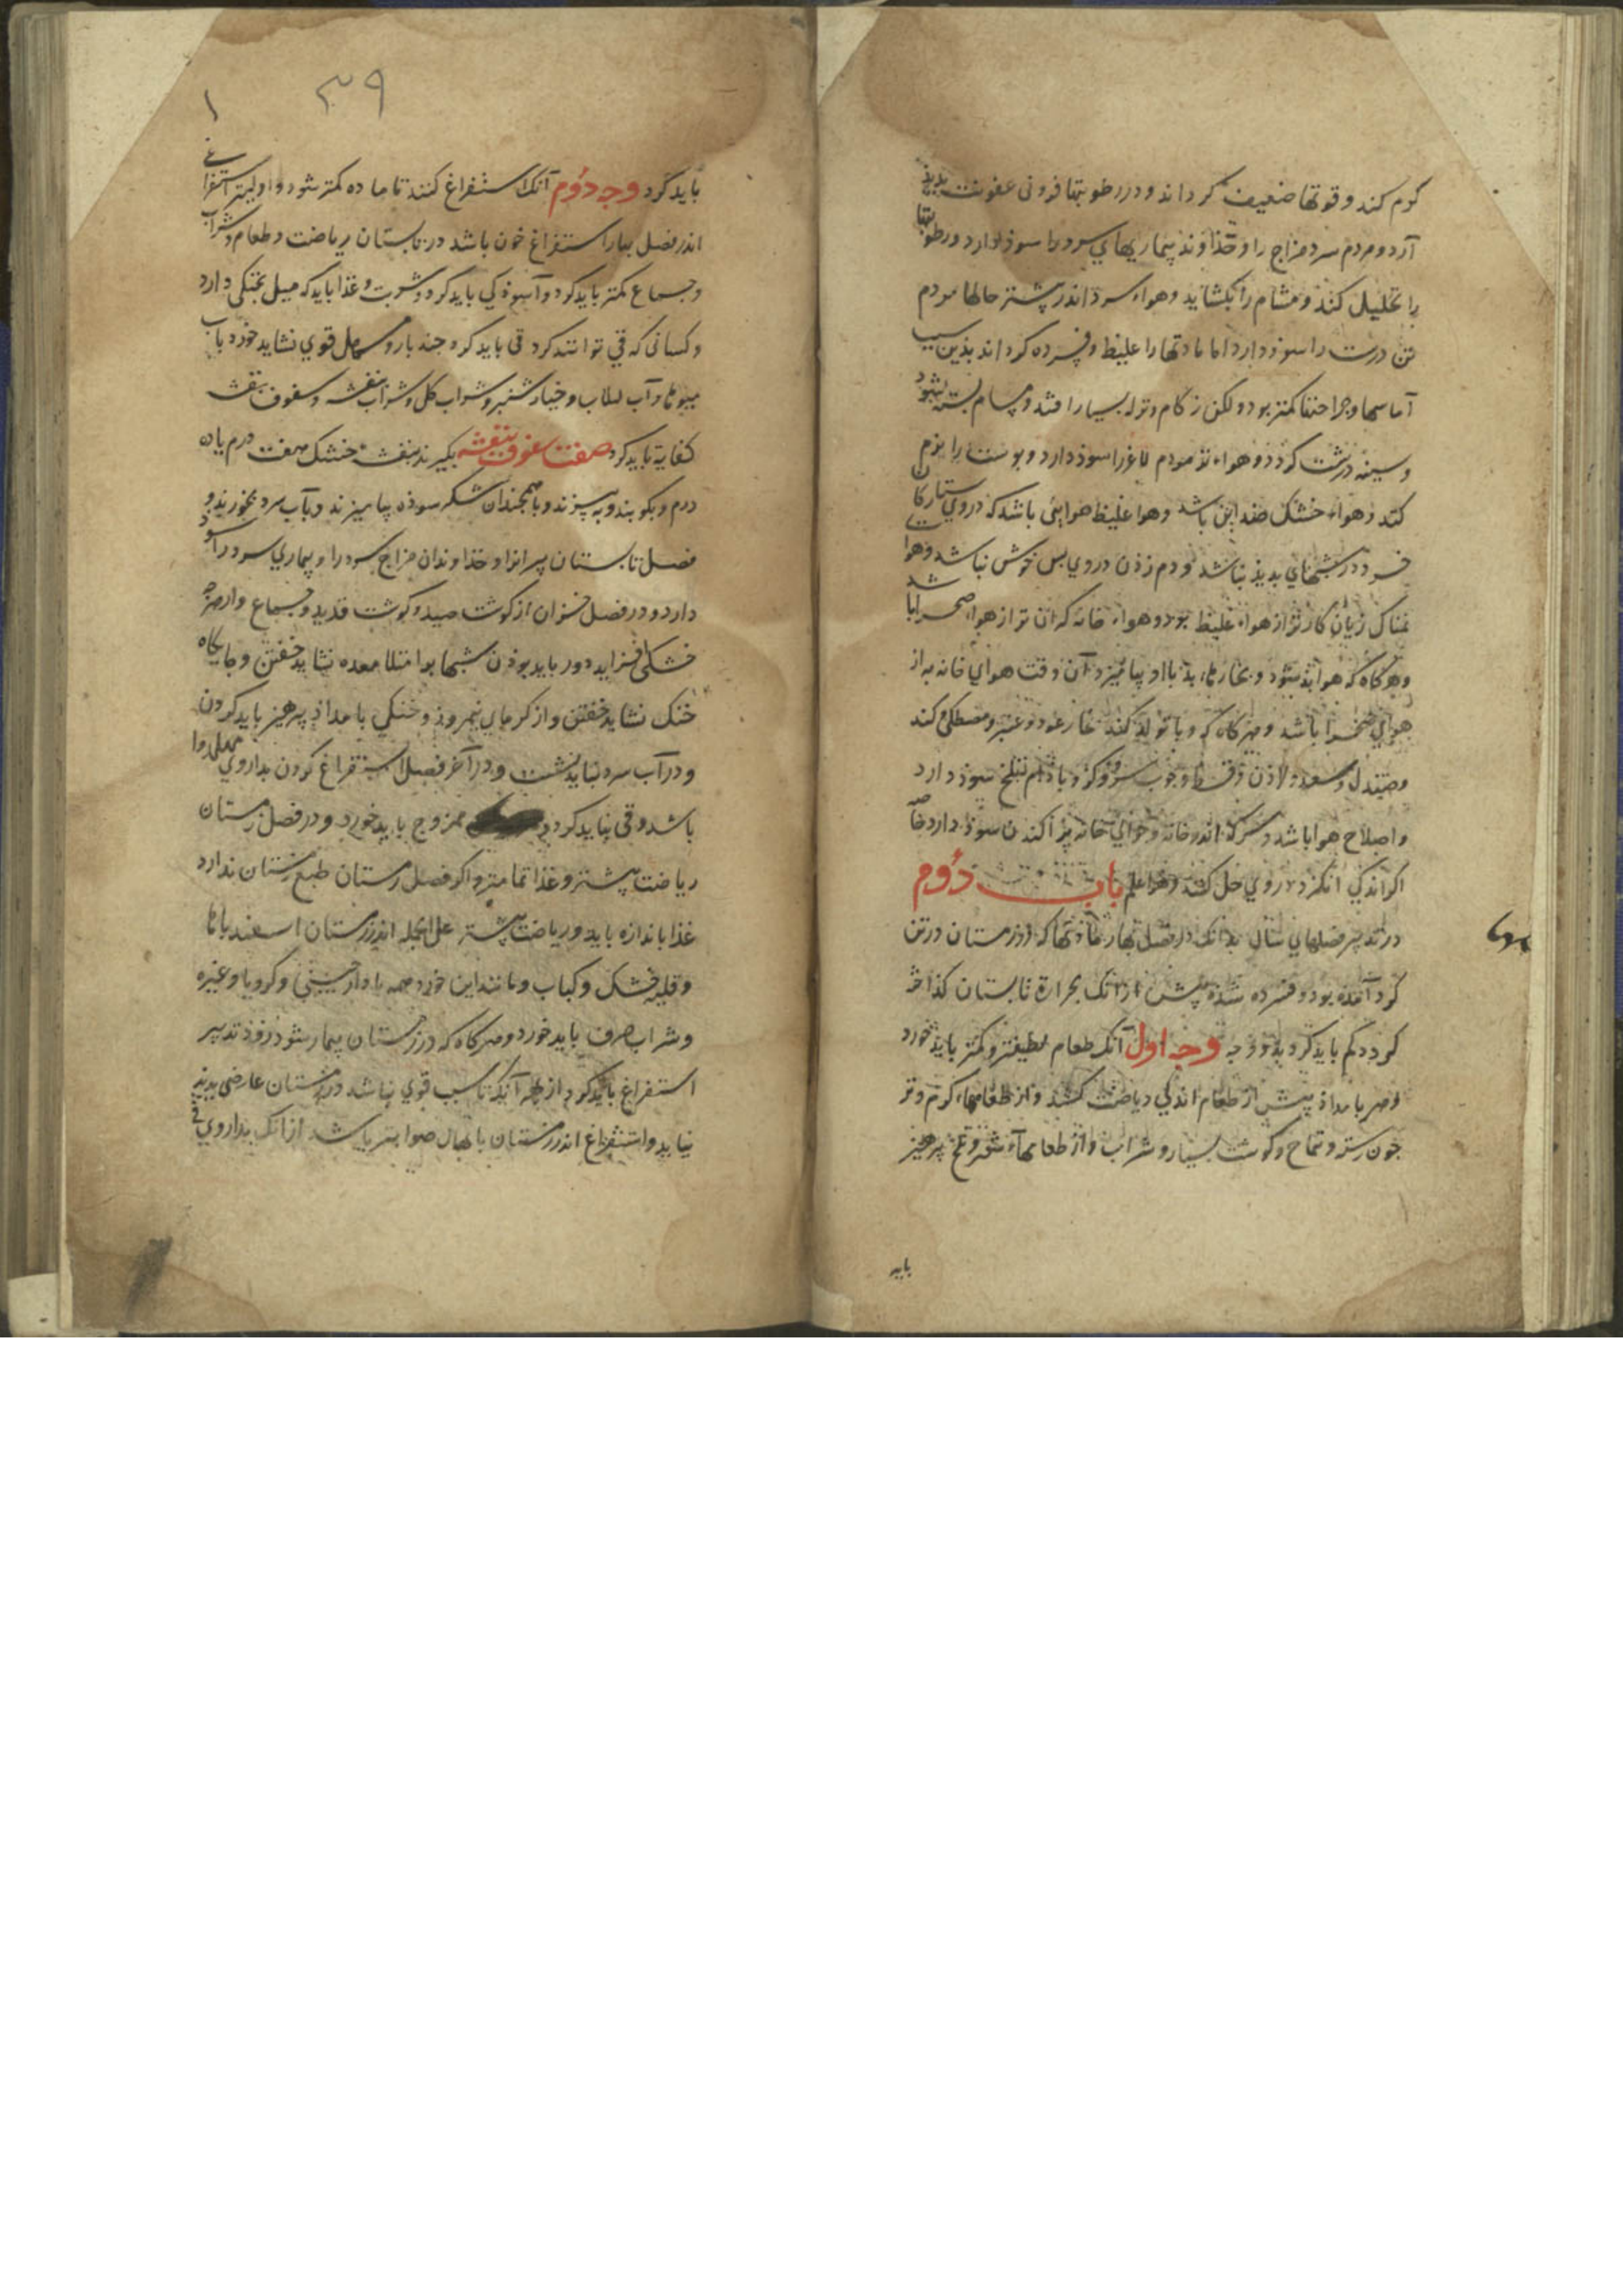 گرم کند و قوتها ضعیف گرداند و در رطوبتها فزونی عفونت پدیذ
آرد و مردم سرد مزاج را و خذاوند بیماریهای سرد را سوذ دارد و رطوبتها
را تحلیل کند و مشام را بکشاید وهواء سرد اندر بیشتر حالها مردم
تن درست را سوذ دارد اما مادتها را غلیظ و فسرده کرداند بذین سبب
آماسها و جراحتها کمتر بود ولکن زکام و نزله بسیار افتد و مسام بسته شود
و سینه درشت کردذ و هواء تر مردم لاغر را سوذ دارد و پوست را نرم
کند و هواء خشک ضد این باشد و هوا غلیظ هوایی باشد که در وی ستارکان
خرد در شبهای بدیذ نباشد و دم زذن در وی بس خوش نباشد و هوا
نمناک زیان کارتر از هواء غلیظ بود و هواء خانه که آن تر از هواء صحرا باشد
و هرکاه که هوا بذ شوذ و بخارهاء بذ با او بیامیزد آن وقت هوای خانه به از
هوای صحرا باشد و هرکاه که وبا تولد کند بخار عود و عنبر و مصطکی و کند
وصندل و سعد و لاذن و قسط و چوب سرو و کز و باذام تلخ سوذ دارد
و اصلاح هوا باشد و سرکه اندر خانه و حوالی خانه پراکندن سوذ دارد خاصه
اکر اندکی انکزد در وی حل کنند والله اعلم باب دوم
در تدبیر فصلهای سال بدانک در فصل بهار مادتها که در زمستان در تن
کرد آمذه بود و فسرده شذه پیش از انک بحرارة تابستان کذاخته
کردد کم باید کرد بدو وجه وجه اول آنک طعام لطیفتر و کمتر بایذ خورد
و هر بامداذ پیش از طعام اندکی ریاضت کنند و از طعامهاء کرم و تر
جون رشته و تتماج و کوشت بسیار و شراب و از طعامهاء شور و تلخ پرهیز
باید
۳۹
۱
باید کرد وجه دوم آنک استفراغ کنند تا ماده کمتر شود و اولیتر استفراغی
اندر فصل بهار استفراغ خون باشد در تابستان ریاضت و طعام و شراب
و جماع کمتر باید کرد و آسوذکی باید کرد و شربت و غذا باید که میل بخنکی دارد
و کسانی که قی توانند کرد قی باید کرد جند بار و مسهل قوی نشاید خورد باب
میوها و آب لبلاب و خیار شنبر و شراب کل و شراب بنفشه و سفوف بنفشه
کفایة باید کرد صفت سفوف بنفشه بکیرند بنفشه خشک هفت درم یا ده
درم و بکوبند و به بیزند و با همجندان شکر سوذه بیامیزند و بآب سرد بخورند و
فصل تابستان پیرانرا و خذاوندان مزاج سرد را و بیماری سرد را سوذ
دارد و در فصل خزان از کوشت صید و کوشت قدید و جماع و از هرچه
خشکی افزاید دور باید بوذن شبها بر امتلا معده نشاید خفتن و جایکاه
خنک نشاید خفتن و از کرمای نیمروز و خنکی بامداذ پرهیز باید کردن
و در آب سرد نباید نشست و در آخر فصل استفراغ کردن بداروی مسهل روا
باشد و قی نباید کرد و ممزوج باید خورد و در فصل زمستان
ریاضت بیشتر و غذا تمامتر و اکر فصل زمستان طبع زمستان ندارد
غذا باندازه باید و ریاضت بیشتر علی الجمله اندر زمستان اسفندباها
و قلیه خشک و کباب و مانند این خورد همه با دارجینی و کرویا و غیره
و شراب صرف باید خورد و هرکاه که در زمستان بیمار شود زوذ تدبیر
استفراغ باید کرد از بهر آنک تا سبب قوی نباشد در زمستان عارضی بدید
نیاید و استفراغ اندر زمستان باسهال صوابتر باشد از انک بداروی قی